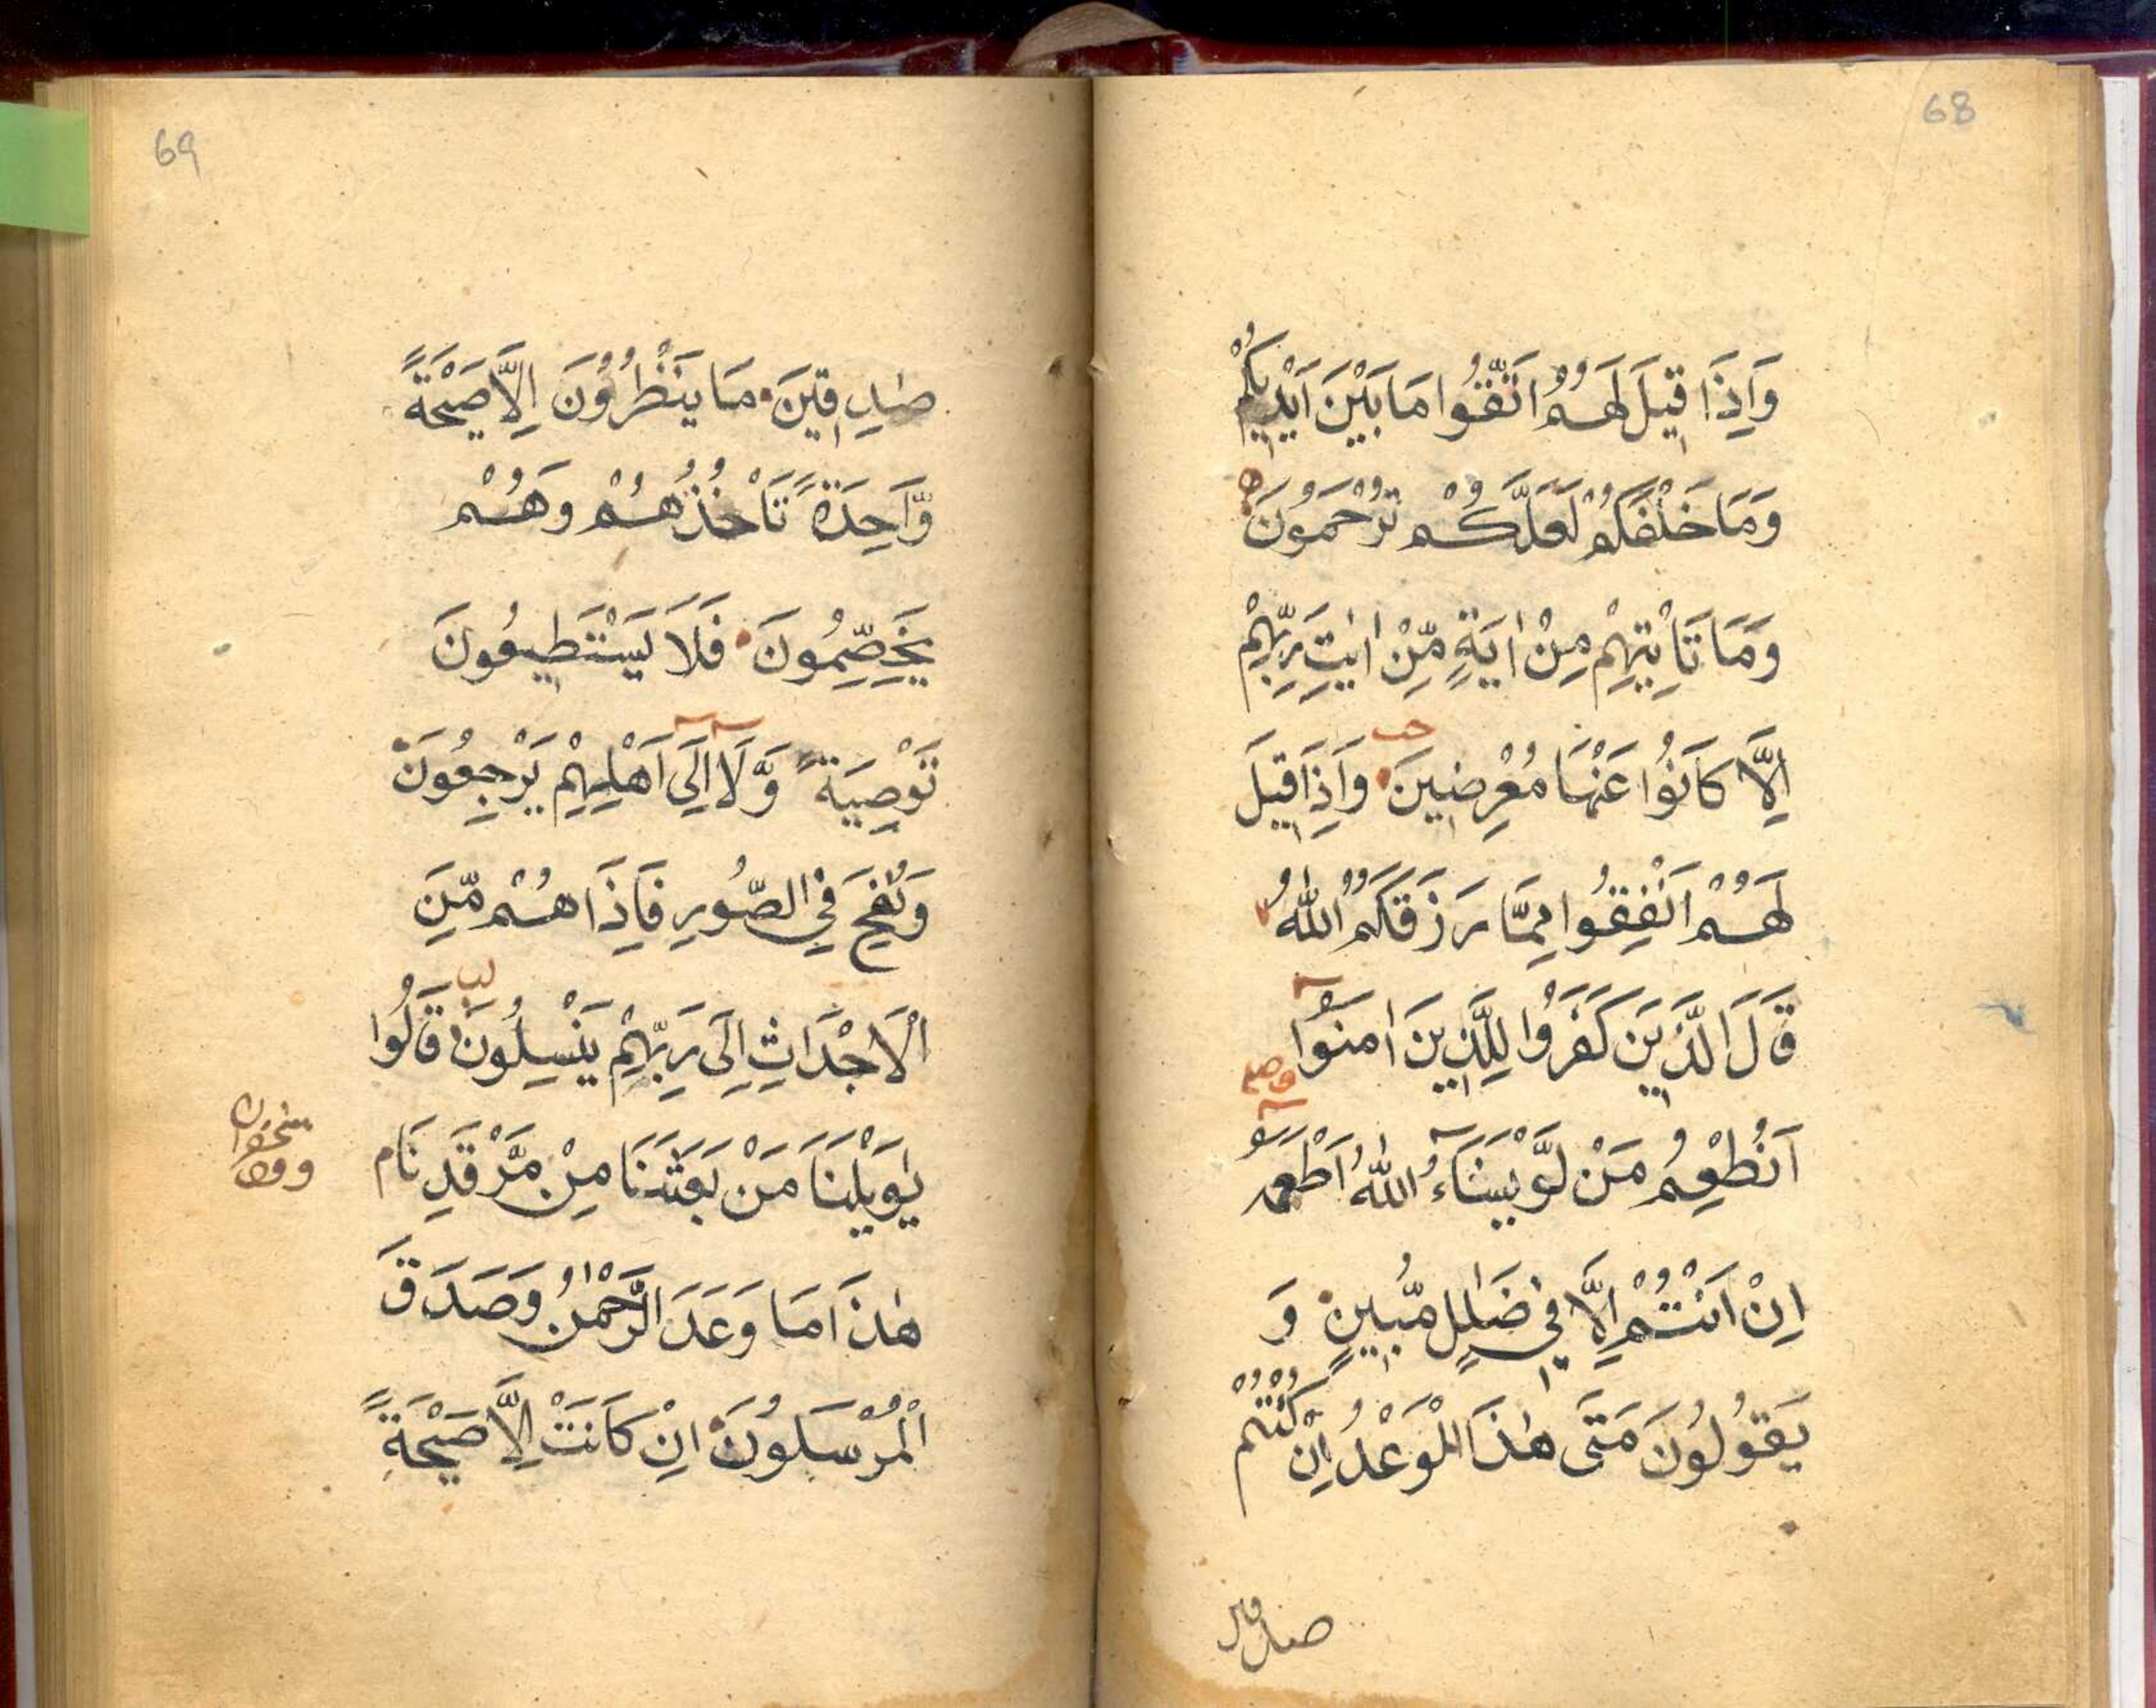 68
وَاِذَا قِيْلَ لَهُمُ اتَّقُوْا مَا بَيْنَ اَيْدِيْكُمْ
وَمَا خَلْفَكُمْ لَعَلَّكُمْ تُرْحَمُوْنَ
وَمَا تَاْتِيْهِمْ مِنْ اٰيَةٍ مِّنْ اٰيٰتِ رَبِّهِمْ
اِلَّا كَانُوْا عَنْهَا مُعْرِضِيْنَ وَاِذَا قِيْلَ
لَهُمْ اَنْفِقُوْا مِمَّا رَزَقَكُمُ اللّٰهُ
قَالَ الَّذِيْنَ كَفَرُوْا لِلَّذِيْنَ اٰمَنُوْا
اَنُطْعِمُ مَنْ لَّوْ يَشَآءُ اللّٰهُ اَطْعَمَهٗ
اِنْ اَنْتُمْ اِلَّا فِيْ ضَلٰلٍ مُّبِيْنٍ وَ
يَقُوْلُوْنَ مَتٰى هٰذَا الْوَعْدُ اِنْ كُنْتُمْ
صدقين
69
صٰدِقِيْنَ مَا يَنْظُرُوْنَ اِلَّا صَيْحَةً
وَّاحِدَةً تَاْخُذُهُمْ وَهُمْ
يَخِصِّمُوْنَ فَلَا يَسْتَطِيْعُوْنَ
تَوْصِيَةً وَّلَا اِلٰى اَهْلِهِمْ يَرْجِعُوْنَ
وَنُفِخَ فِي الصُّوْرِ فَاِذَا هُمْ مِّنَ
الْاَجْدَاثِ اِلٰى رَبِّهِمْ يَنْسِلُوْنَ قَالُوْا
يٰوَيْلَنَا مَنْ بَعَثَنَا مِنْ مَّرْقَدِنَا م
هٰذَا مَا وَعَدَ الرَّحْمٰنُ وَصَدَقَ
الْمُرْسَلُوْنَ اِنْ كَانَتْ اِلَّا صَيْحَةً